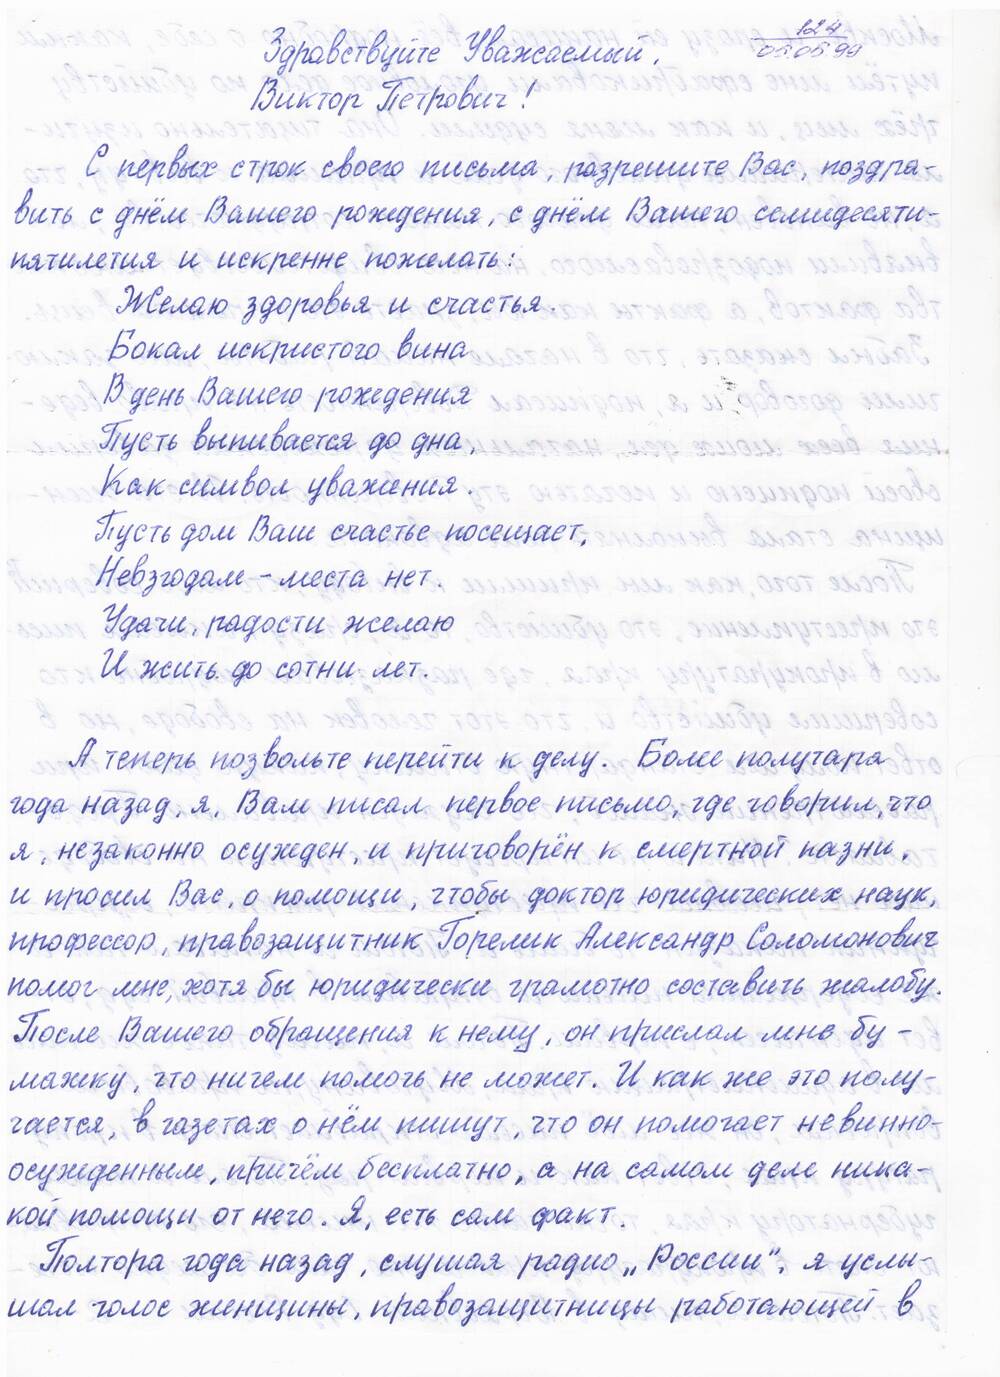 124
05.05.99
Здравствуйте Уважаемый,
Виктор Петрович!
С первых строк своего письма, разрешите Вас, поздра-
вить с днём Вашего рождения, с днём Вашего семидесяти-
пятилетия и искренне пожелать:
Желаю здоровья и счастья.
Бокал искристого вина
В день Вашего рождения
Пусть выпивается до дна,
Как символ уважения.
Пусть дом Ваш счастье посещает,
Невзгодам - места нет.
Удачи, радости желаю
И жить до сотни лет.
А теперь позвольте перейти к делу. Более полутара
года назад, я, Вам писал первое письмо, где говорил, что
я, незаконно осужден, и приговорён к смертной казни,
и просил Вас, о помощи, чтобы доктор юридических наук,
профессор, правозащитник Горелик Александр Соломонович
помог мне, хотя бы юридически грамотно составить жалобу.
После Вашего обращения к нему, он прислал мне бу-
мажку, что ничем помочь не может. И как же это полу-
чается, в газетах о нём пишут, что он помогает невинно-
осужденным, причём бесплатно, а на самом деле ника-
кой помощи от него. Я, есть сам факт.
Полтора года назад, слушая радио „России", я услы-
шал голос женщины, правозащитницы работающей в